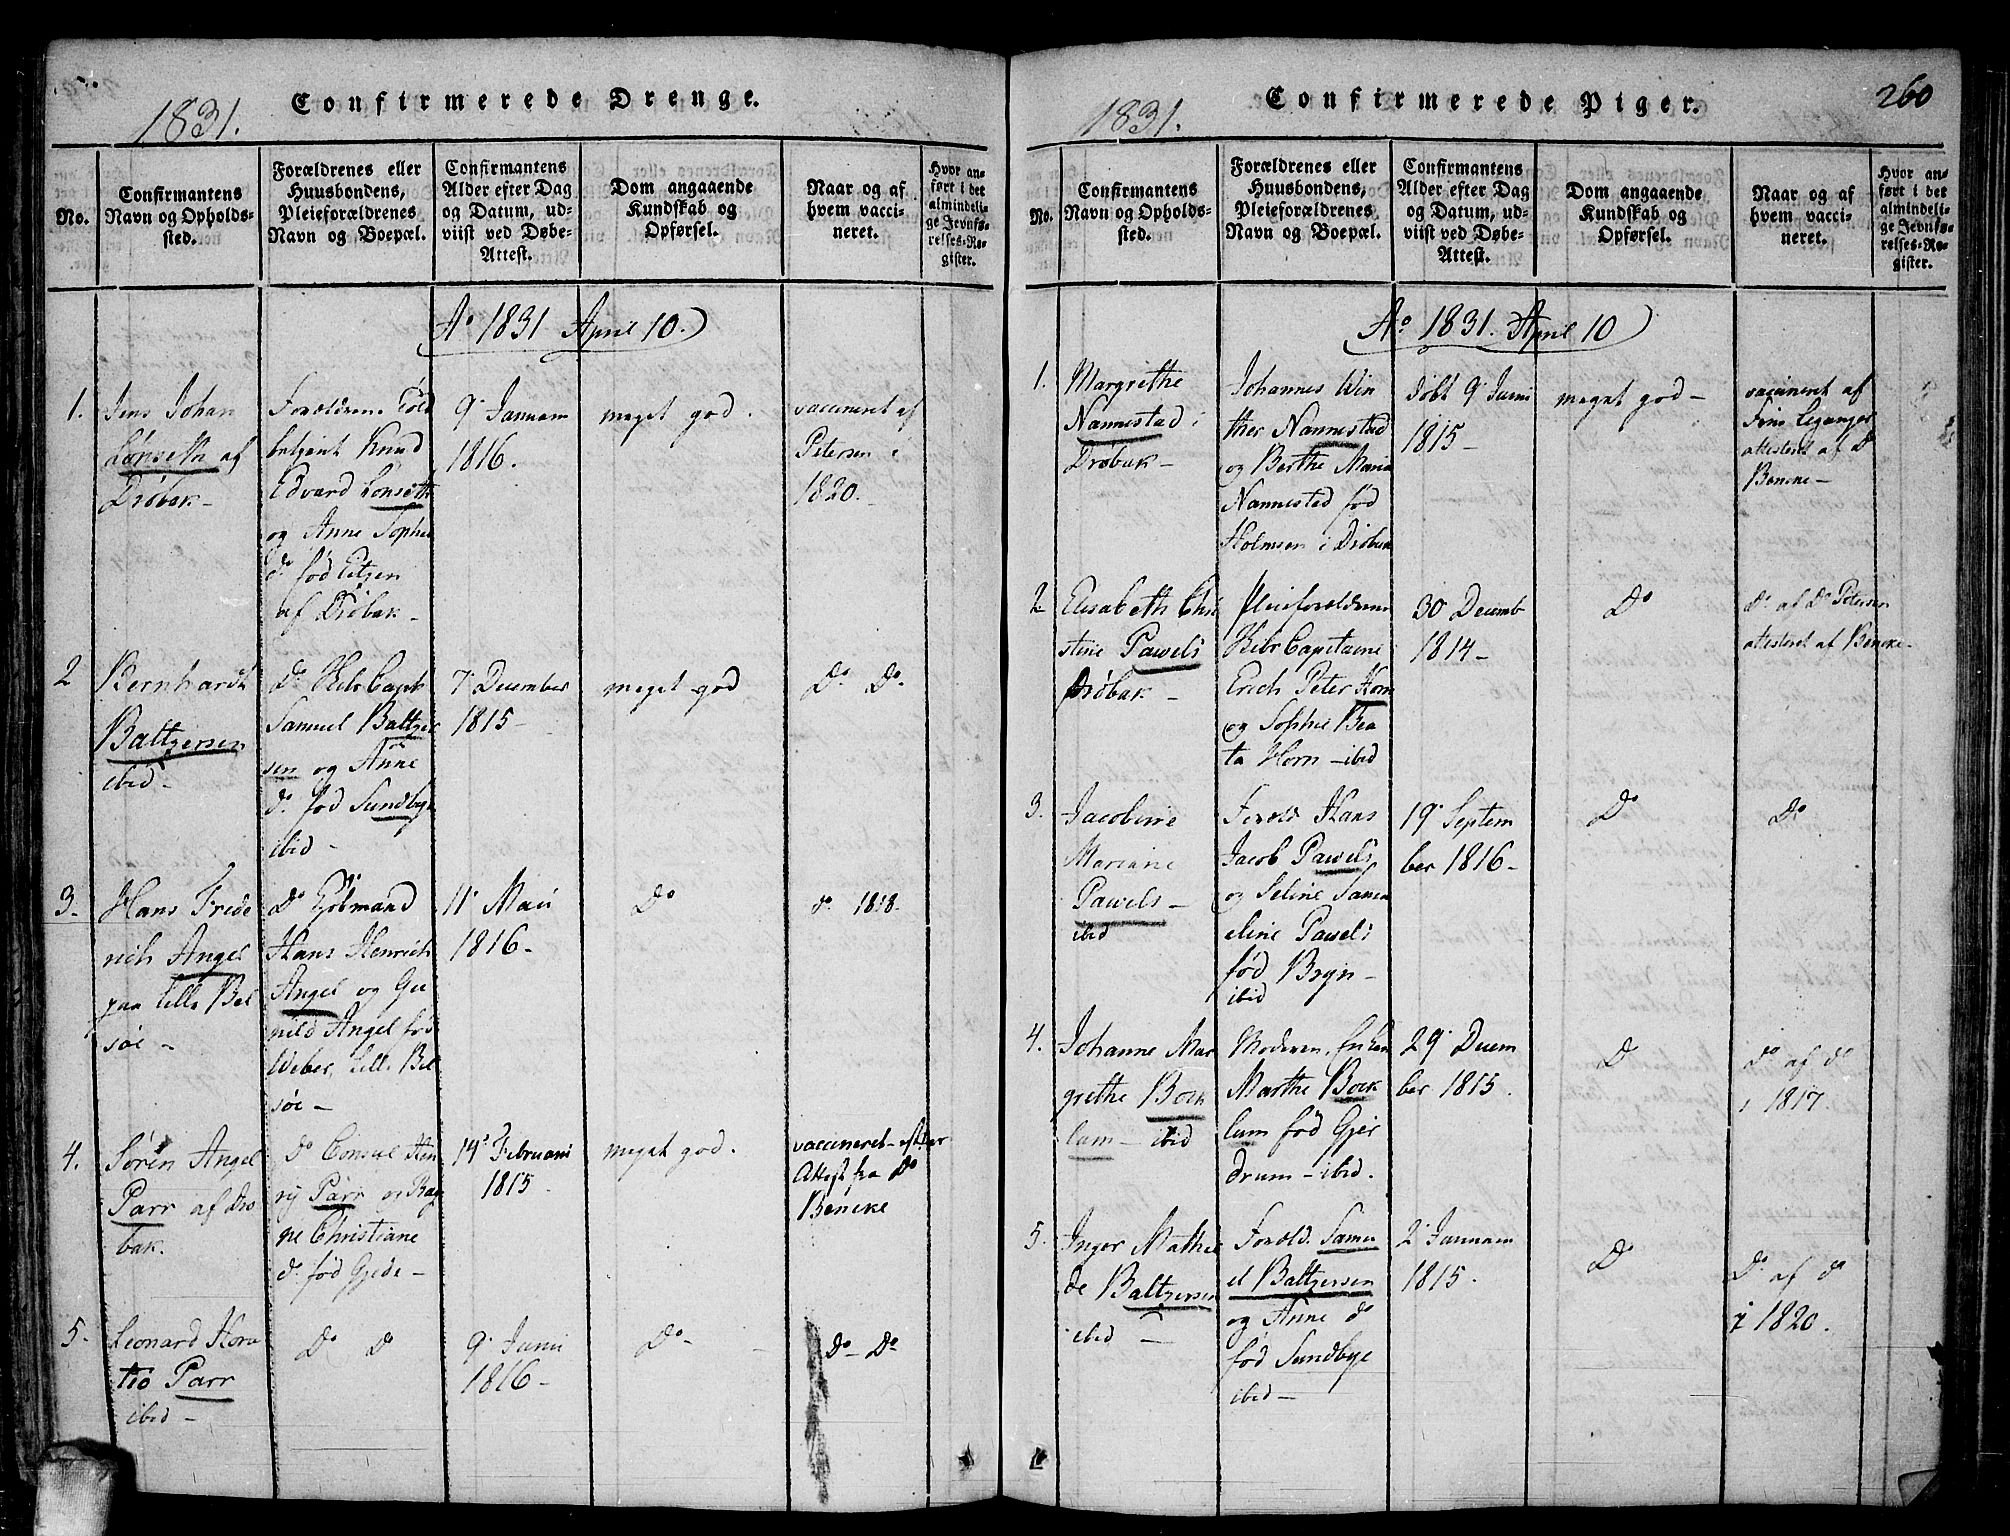 1831.
Confirmerede Drenge.
No.
Confirmantens
Navn og Opholds-
sted.
Forældrenes eller
Huusbondens,
Pleieforældrenes
Navn og Boepæl.
Confirmantens
Alder efter Dag
og Datum, ud-
viist ved Døbe-
Attest.
Dom angaaende
Kundskab og
Opførsel.
Naar og af
hvem vacci-
neret.
Hvor an-
ført i det
almindeli-
ge Jevnfø-
relses-Re-
gister.
Ao 1831 April 10.
1.
Jens Johan
Lønseth af
Drøbak -
Forældrene Told
betjent Knud
Edvard Lønseth
og Anne Sophie
do fød Eitzen
af Drøbak -
9 Januari
1816.
meget god.
vaccineret af
Petersen i
1820.
2
Bernhardt
Baltzersen
ibid -
Do Skibscapt
Samuel Baltzer
sen og Anne
do fød Sundbye
ibid -
7 December
1815 -
meget god
Do Do
3.
Hans Frede
rich Angel
paa Lille Bel
søe -
Do
Hans Henrich
Angel og Gu
nild Angel fød
Weber, Lille Bel
søe -
11 Maii
1816 -
Do
do 1818.
4.
Søren Angel
Parr af Drø
bak.
do Consul Hen
rij Parr og Rag
ne Christiane
do fød Gjede -
14 Februarii
1815
meget god.
vaccineret efter
Attest fra Do
Beneke
5.
Leonard Hora
tio Parr
ibid -
Do D
9 Junii
1816 -
Do
Do - Do
1831.
Confirmerede Piger.
260
No.
Confirmantens
Navn og Opholds-
sted.
Forældrenes eller
Huusbondens,
Pleieforældrenes
Navn og Boepæl.
Confirmantens
Alder efter Dag
og Datum, ud-
viist ved Døbe-
Attest.
Dom angaaende
Kundskab og
Opførsel.
Naar og af
hvem vacci-
neret.
Hvor an-
ført i det
almindeli-
ge Jevnfø-
relses-Re-
gister.
Ao 1831. April 10
1.
Margrethe
Nannestad i
Drøbak -
Johannes Win
ther Nannestad
og Berthe Maria
Nannestad fød
Holmsen i Drøbak
døbt 9 Junii
1815 -
meget god -
vaccineret af
Leganger
attesteret af D
Beneke -
2
Elisabeth Chri
stine Pawels
Drøbak -
Pleieforældrene
Skibs Capitaine
Erich Peter Horn
og Sophie Bea
ta Horn - ibid
30 Decemb
1814 -
Do
Do af Do Petersen
attesteret af Beneke -
3.
Jacobine
Mariane
Pawels -
ibid
Foræld Hans
Jacob Pawels
og Seline Samu
eline Pawels
fød Bryn -
ibid
19 Septem
ber 1816 -
Do
Do
4.
Johanne Mar
grethe Boek
lum - ibid
Moderen, Enken
Marthe Boek
lum fød Gjer
drum - ibid.
29 Decem
ber 1815.
D
Do af do
i 1817.
5.
Inger Mathil
de Baltzersen
ibid -
Foræld. Samu
el Baltzersen
og Anne do
fød Sundbye
ibid -
2 Januarii
1815.
Do
Do af do
i 1820.